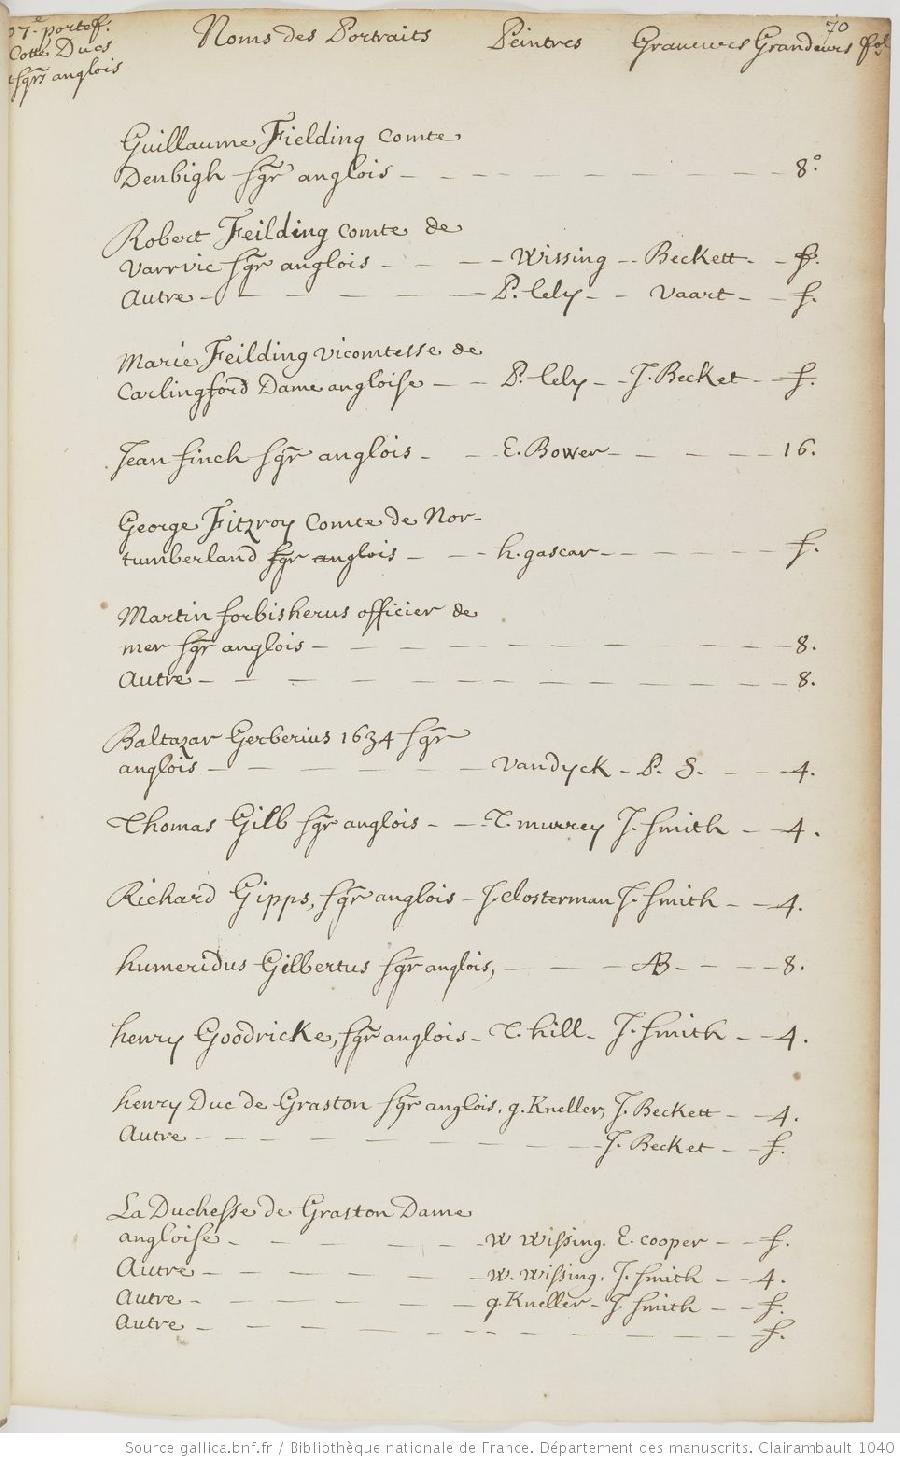 70
Cotté Ducs
sgr̃s anglois
Noms des Portraits Peintres Graveurs Grandeurs fol
Guillaume Fielding comte
Denbigh sgr̃ anglois - - - - - - - - 8°
Robert Feilding comte de
Varrvic sgr̃ anglois - - - Wissing - Beckett - f.
Autre - - - - - P. lely - - Vaart - f.
Marie Feilding vicomtesse de
Carlingford Dame angloise - - P. lely - J. Becket - f.
Jean finch sgr̃ anglois - - E. Bower - - - - 16.
George Fitzroy comte de Nor-
tumberland sgr anglois - - h. gascar - - - - f.
Martin forbisherus officier de
mer sgr̃ anglois - - - - - - - - 8.
Autre - - - - - - - - 8.
Baltazar Gerberius 1634 sgr̃
anglois - - - - - Vandyck - P. S. - - 4.
Thomas Gill sgr̃ anglois - - T. murrey J. Smith - 4.
Richard Gipps, sgr̃ anglois - J. closterman J. Smith - - 4.
humeridus Gilbertus sgr̃ anglois, - - - AB - - - 8.
henry Goodricke, sgr̃ anglois - T. hill - J. Smith - 4.
henry Duc de Graston sgr̃ anglois. g. Kneller, J. Beckett - 4.
Autre - - - - - - - J. Becket - f.
La Duchesse de Graston Dame
angloise - - - - - W Wissing. E. cooper - f.
Autre - - - - - W. Wissing. J. Smith - 4.
Autre - - - - - g. Kneller - J Smith - f.
Autre - - - - - - - - f.
Source gallica.bnf.fr / Bibliothèque nationale de France. Département des manuscrits. Clairambault 1040